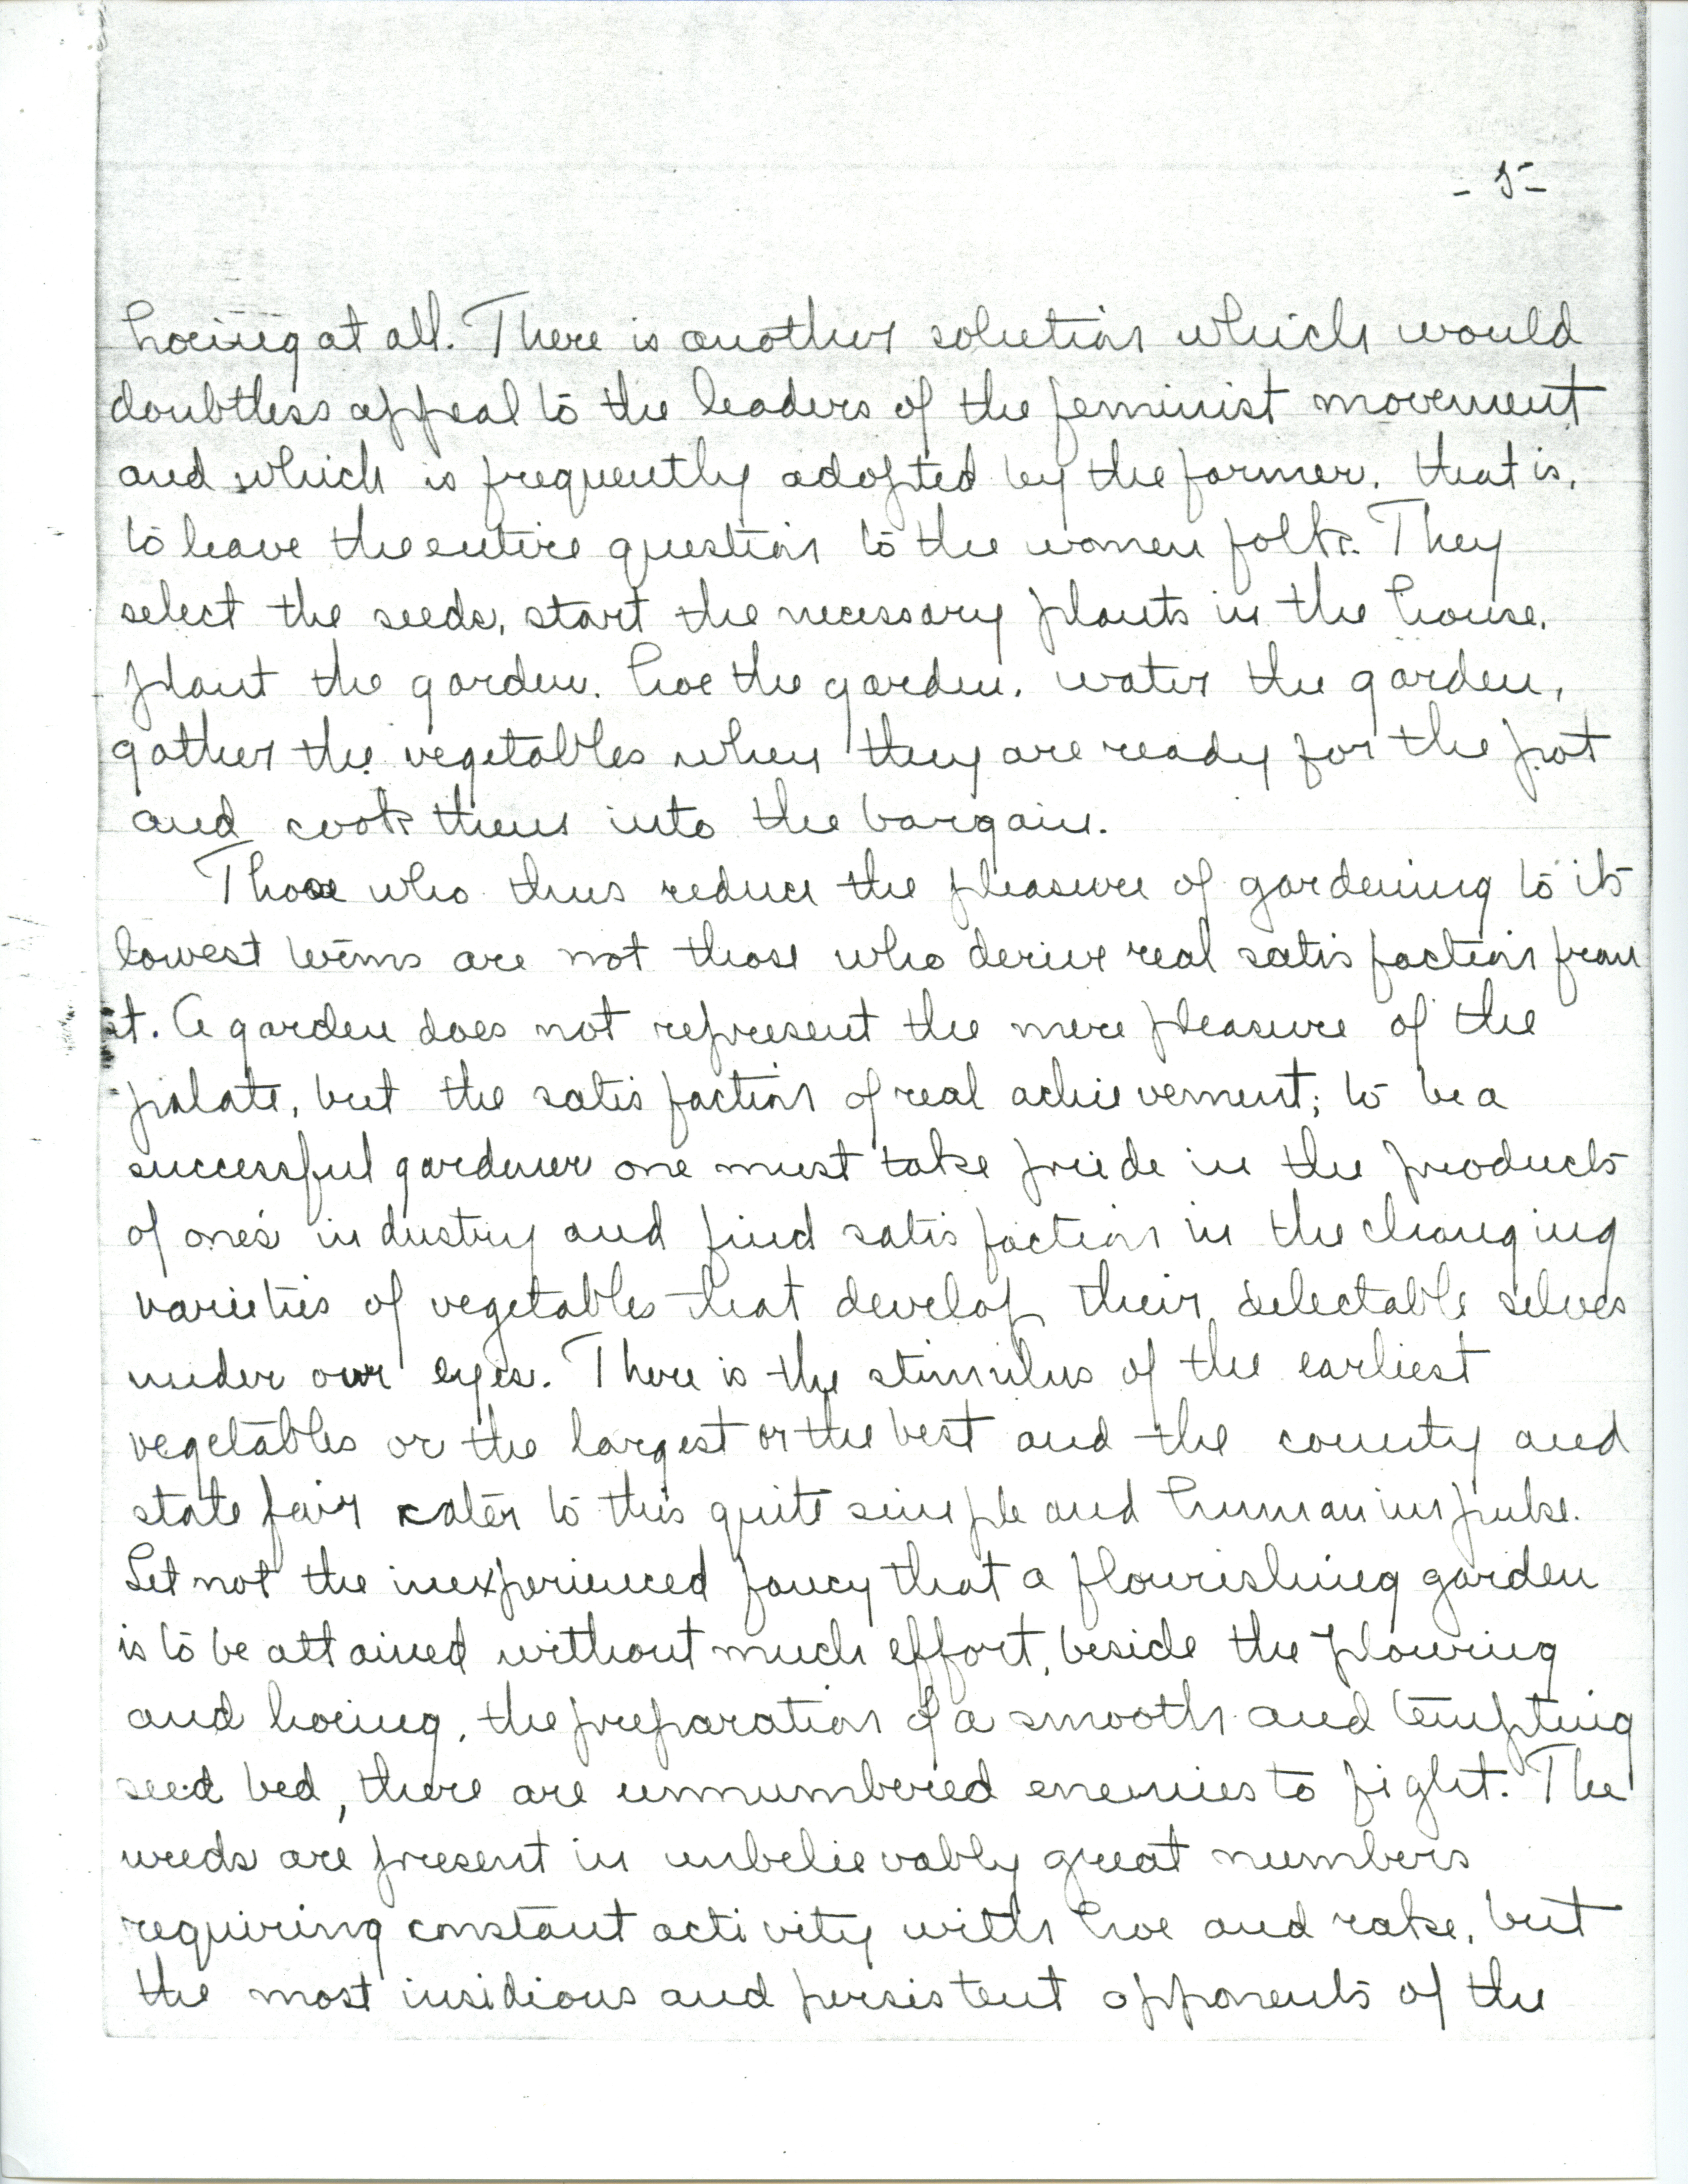 - 5 -
hoeing at all. There is another solution which would
doubtless appeal to the leaders of the feminist movement
and which is frequently adopted by the farmer, that is,
to leave the entire question to the women folk. They
select the seeds, start the necessary plants in the house,
plant the garden, hoe the garden, water the garden,
gather the vegetables when they are ready for the pot
and cook them into the bargain.
Those who thus reduce the pleasure of gardening to its
lowest terms are not those who derive real satisfaction from
it. A garden does not represent the mere pleasure of the
palate, but the satisfaction of real achievement; to be a
successful gardener one must take pride in the products
of one's industry and find satisfaction in the changing
varieties of vegetables that develop their delectable selves
under our eyes. There is the stimulus of the earliest
vegetables or the largest or the best and the county and
state fair cater to this quite simple and human impulse.
Let not the inexperienced fancy that a flourishing garden
is to be attained without much effort, beside the plowing
and hoeing, the preparation of a smooth and tempting
seed bed, there are unnumbered enemies to fight. The
weeds are present in unbelievably great numbers
requiring constant activity with hoe and rake, but
the most insidious and persistent opponents of the